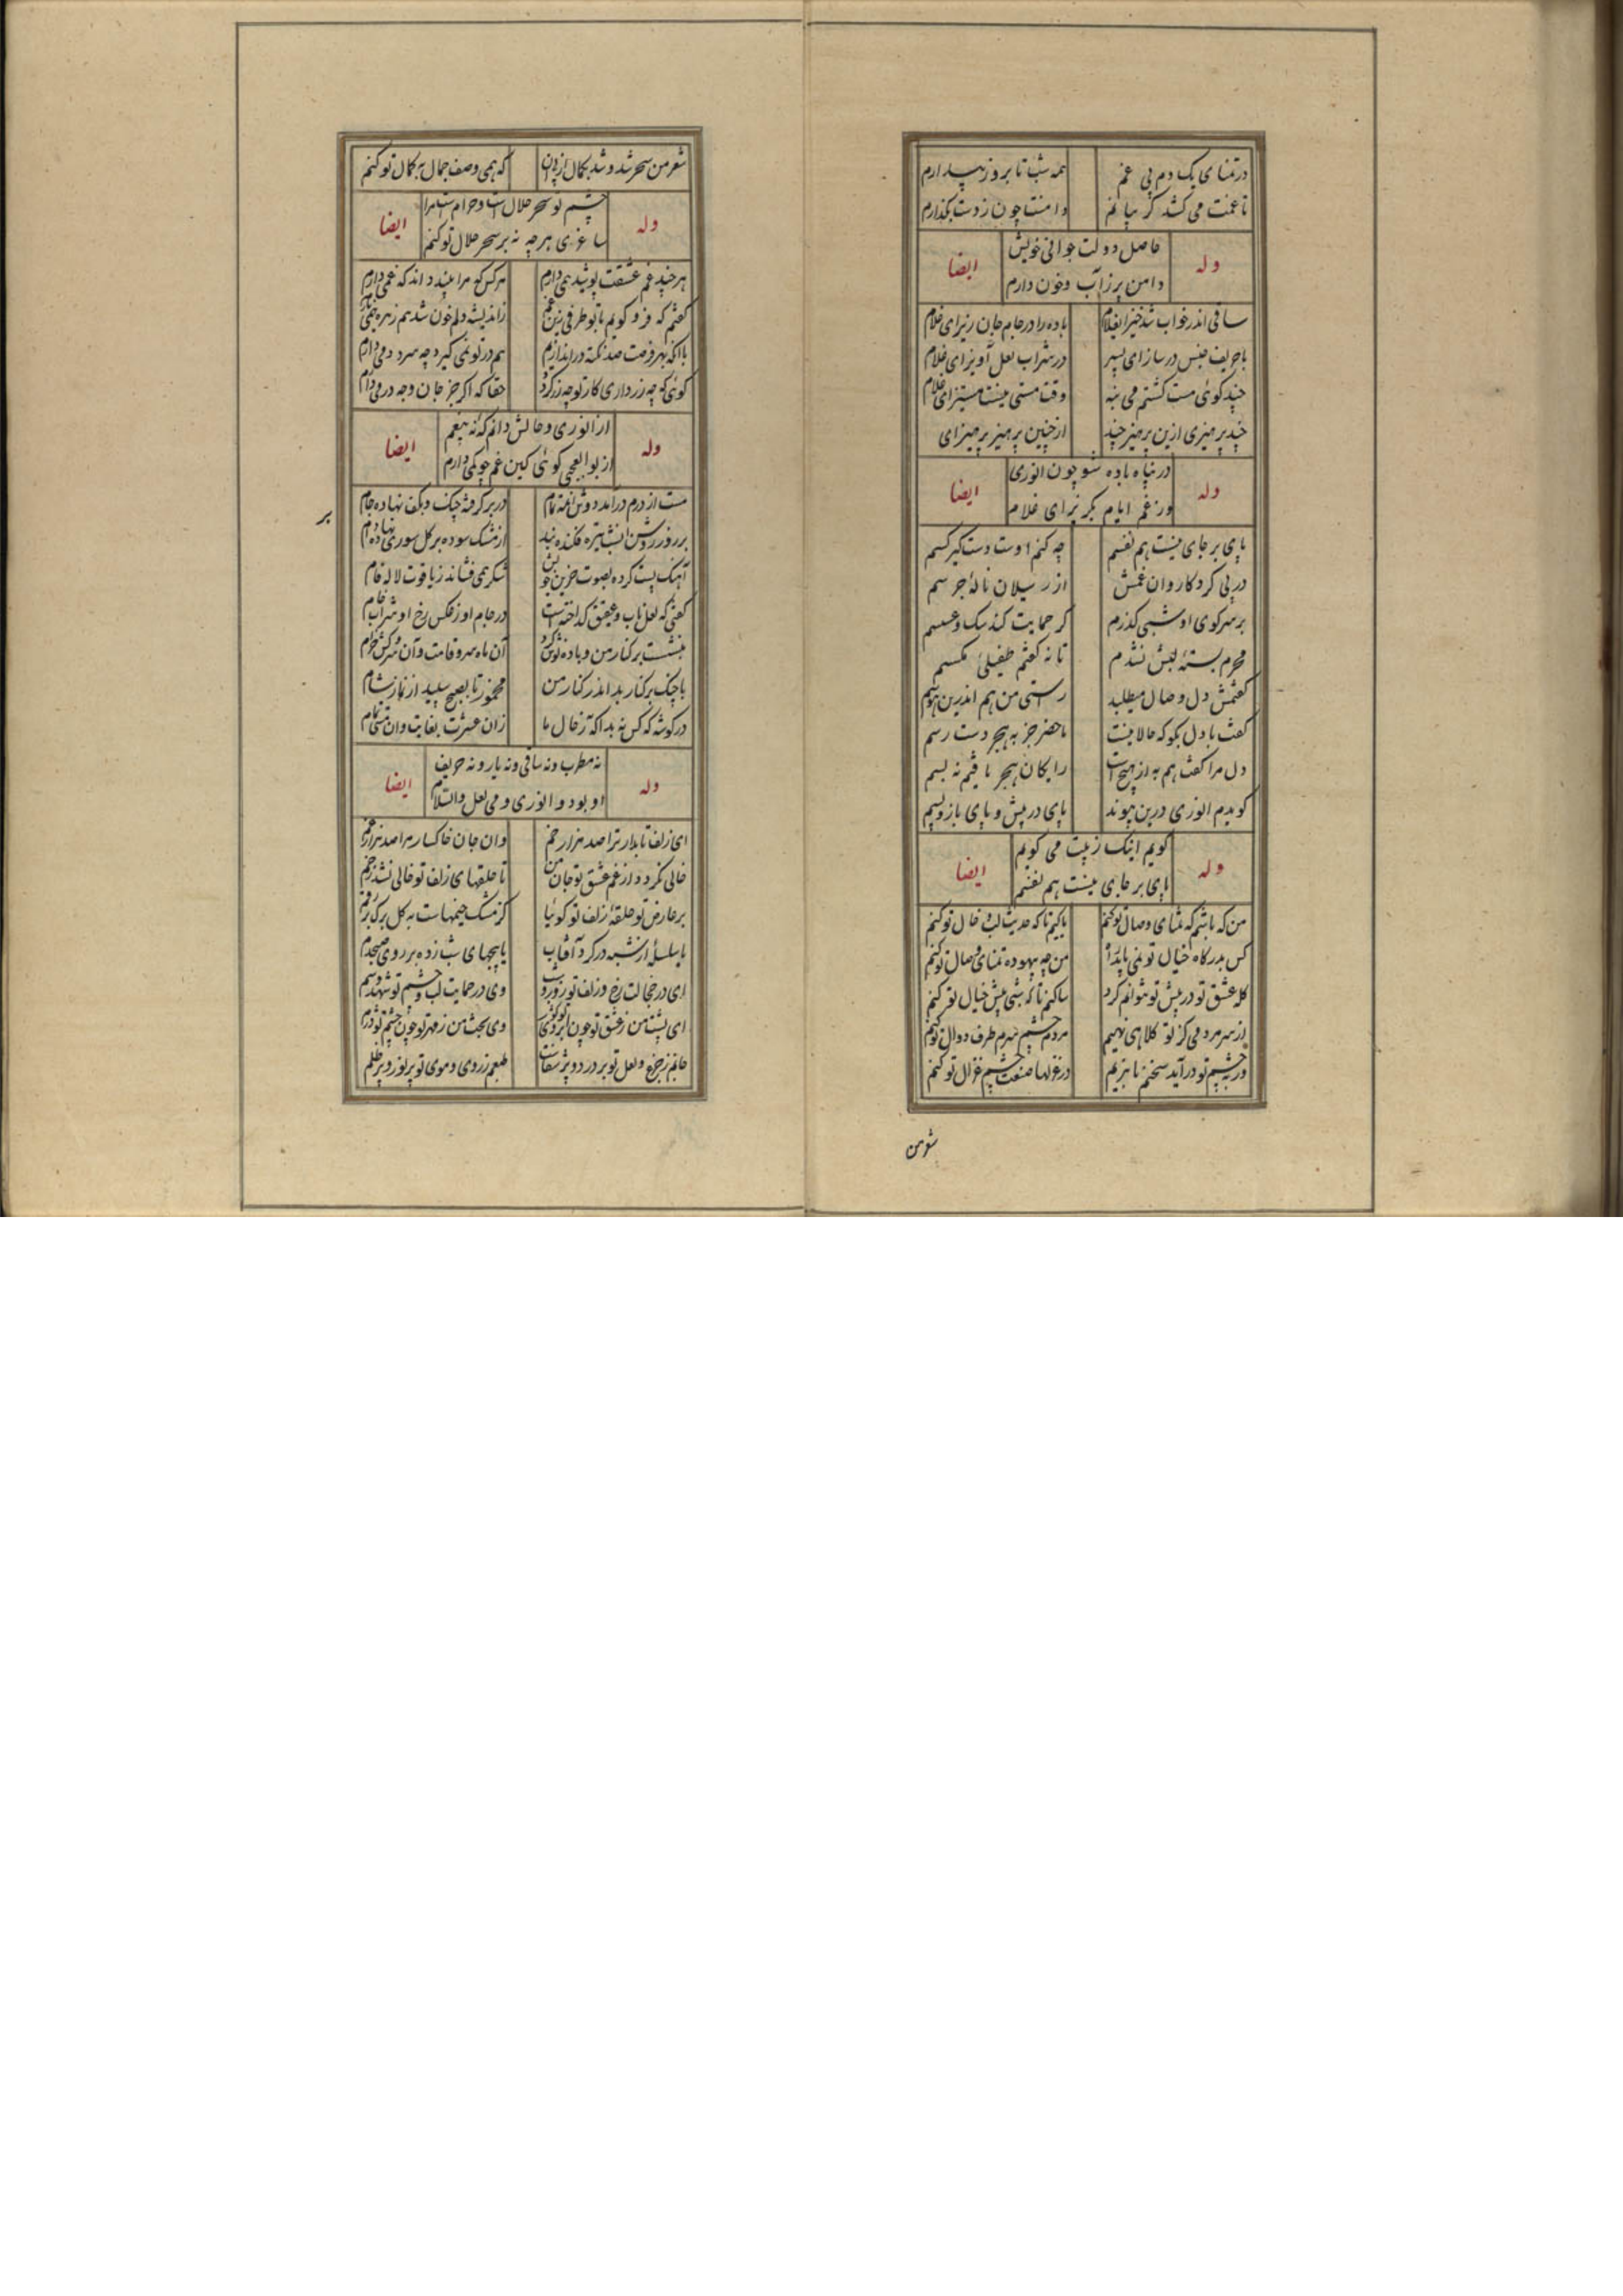 در تمنای یک دم بی غم همه شب تا بروز بیدارم
تا غمت می کشد گریبانم دامنت چون ز دست بگذارم
حاصل دولت جوانی خویش
وله ایضا
دامن پر ز آب و خون دارم
ساقی اندر خواب شد خیز ای غلام باده را در جام جان ریز ای غلام
با حریف جنس درساز ای پسر در شراب لعل آویز ای غلام
چند گوئی مست گشتم می بنه وقت مستی نیست مستیز ای غلام
چند پرهیزی ازین پرهیز چند از چنین پرهیز پرهیز ای
در پناه باده شو چون انوری
وله ایضا
وز غم ایام بگریز ای غلام
پای بر جای نیست هم نفسم چه کنم اوست دست گیر کسم
در پی گرد کاروان غمش از رسیلان نالهٔ جرسم
بر سر کوی او شبی گذرم گر حمایت کند سک و عسسم
محرم بستهٔ لبش نشدم تا نه گفتم طفیلی مگسم
گفتمش دل وصال میطلبد راستی من هم اندرین هوسم
گفت با دل بگو که حالا نیست ماحضر جز به هجر دست رسم
دل مرا گفت هم به از هیچ است رایگان هجر یافتم نه بسم
گویدم انوری درین پیوند پای در پیش و پای باز پسم
گویم اینک ز نیت می گویم
وله ایضا
پای بر جای نیست هم نفسم
من که باشم که تمنای وصال تو کنم یا کیم تا که حدیث لب و خال تو کنم
کس بدرگاه خیال تو نمی یابد راه من چه بیهوده تمنای وصال تو کنم
گله عشق تو در پیش تو نتوانم کرد ساکنم تا که شبی پیش خیال تو کنم
از سر مردمی گر تو کلاهی نهیم مردم چشم سرم طرف دوال تو کنم
ور به چشم تو درآید سخنم تا بزیم در غزلها صفت چشم غزال تو کنم
شعر من
شعر من سحر شد و شد بکمال از پی آن که همی وصف جمال به کمال تو کنم
چشم تو سحر حلال است و حرام است مرا
وله ایضا
شاعری هر چه نه بر سحر حلال تو کنم
هر چند غم عشقت پوشیده همی دارم هر کس که مرا بیند داند که غمی دارم
گفتم که فرو گویم با تو طرفی زین غم زاندیشه دلم خون شد هم زهره نمی یارم
با آنکه بهر فرصت صد نکته دراندازم هم در تو نمی گیرد چه سرد دمی دارم
گوئی که چه زر داری کار تو چو زر گردد حقا که اگر جز جان وجه درمی دارم
از انوری و حالش دانم که نه بیغم
وله ایضا
از بوالعجبی گوئی کین غم چو کمی دارم
مست از درم درآمد دوش آن مه تمام در بر گرفته چنگ و بکف نهاده جام
بر روز روشن از شب تیره فکنده بند از مشک سوده بر گل سوری نهاده دام
آهنگ پست کرده بصوت حزین خویش شکر همی فشاند ز یاقوت لاله فام
گفتی که لعل ناب و عقیق گداخته است در جام او ز عکس رخ او شراب خام
بنشست بر کنار من و باده نوش کرد آن ماه سرو قامت و آن سرو کش خرام
با چنگ بر کنار بد اندر کنار من مخمور تا بصبح سپید از نماز شام
در گوشه که کس نه بد آگه ز حال ما زان عشرت بغایت وان مستی تمام
بر
نه مطرب و نه ساقی و نه یار و نه حریف
وله ایضا
او بود و انوری و می لعل والسلام
ای زلف تابدار ترا صد هزار خم وان جان خاکسار مرا صد هزار غم
خالی نگردد از غم عشق تو جان من تا حلقهای زلف تو خالی نشد ز خم
بر عارض تو حلقهٔ زلف تو گوئیا کز مشک خیمهاست به گلبرگ بر
یا سلسله از شبه در گرد آفتاب یا پیچهای شب زده بر روی صبحدم
ای در خجالت رخ و زلف تو روز و شب وی در حمایت لب و چشم تو شهد و سم
ای پشت من ز عشق تو چون ابروی تو کوز وی بخت من ز مهر تو چون چشم تو دژم
جانم ز جزع و لعل تو پر درد و پر شفاست طبعم ز روی و موی تو پر نور و پر ظلم